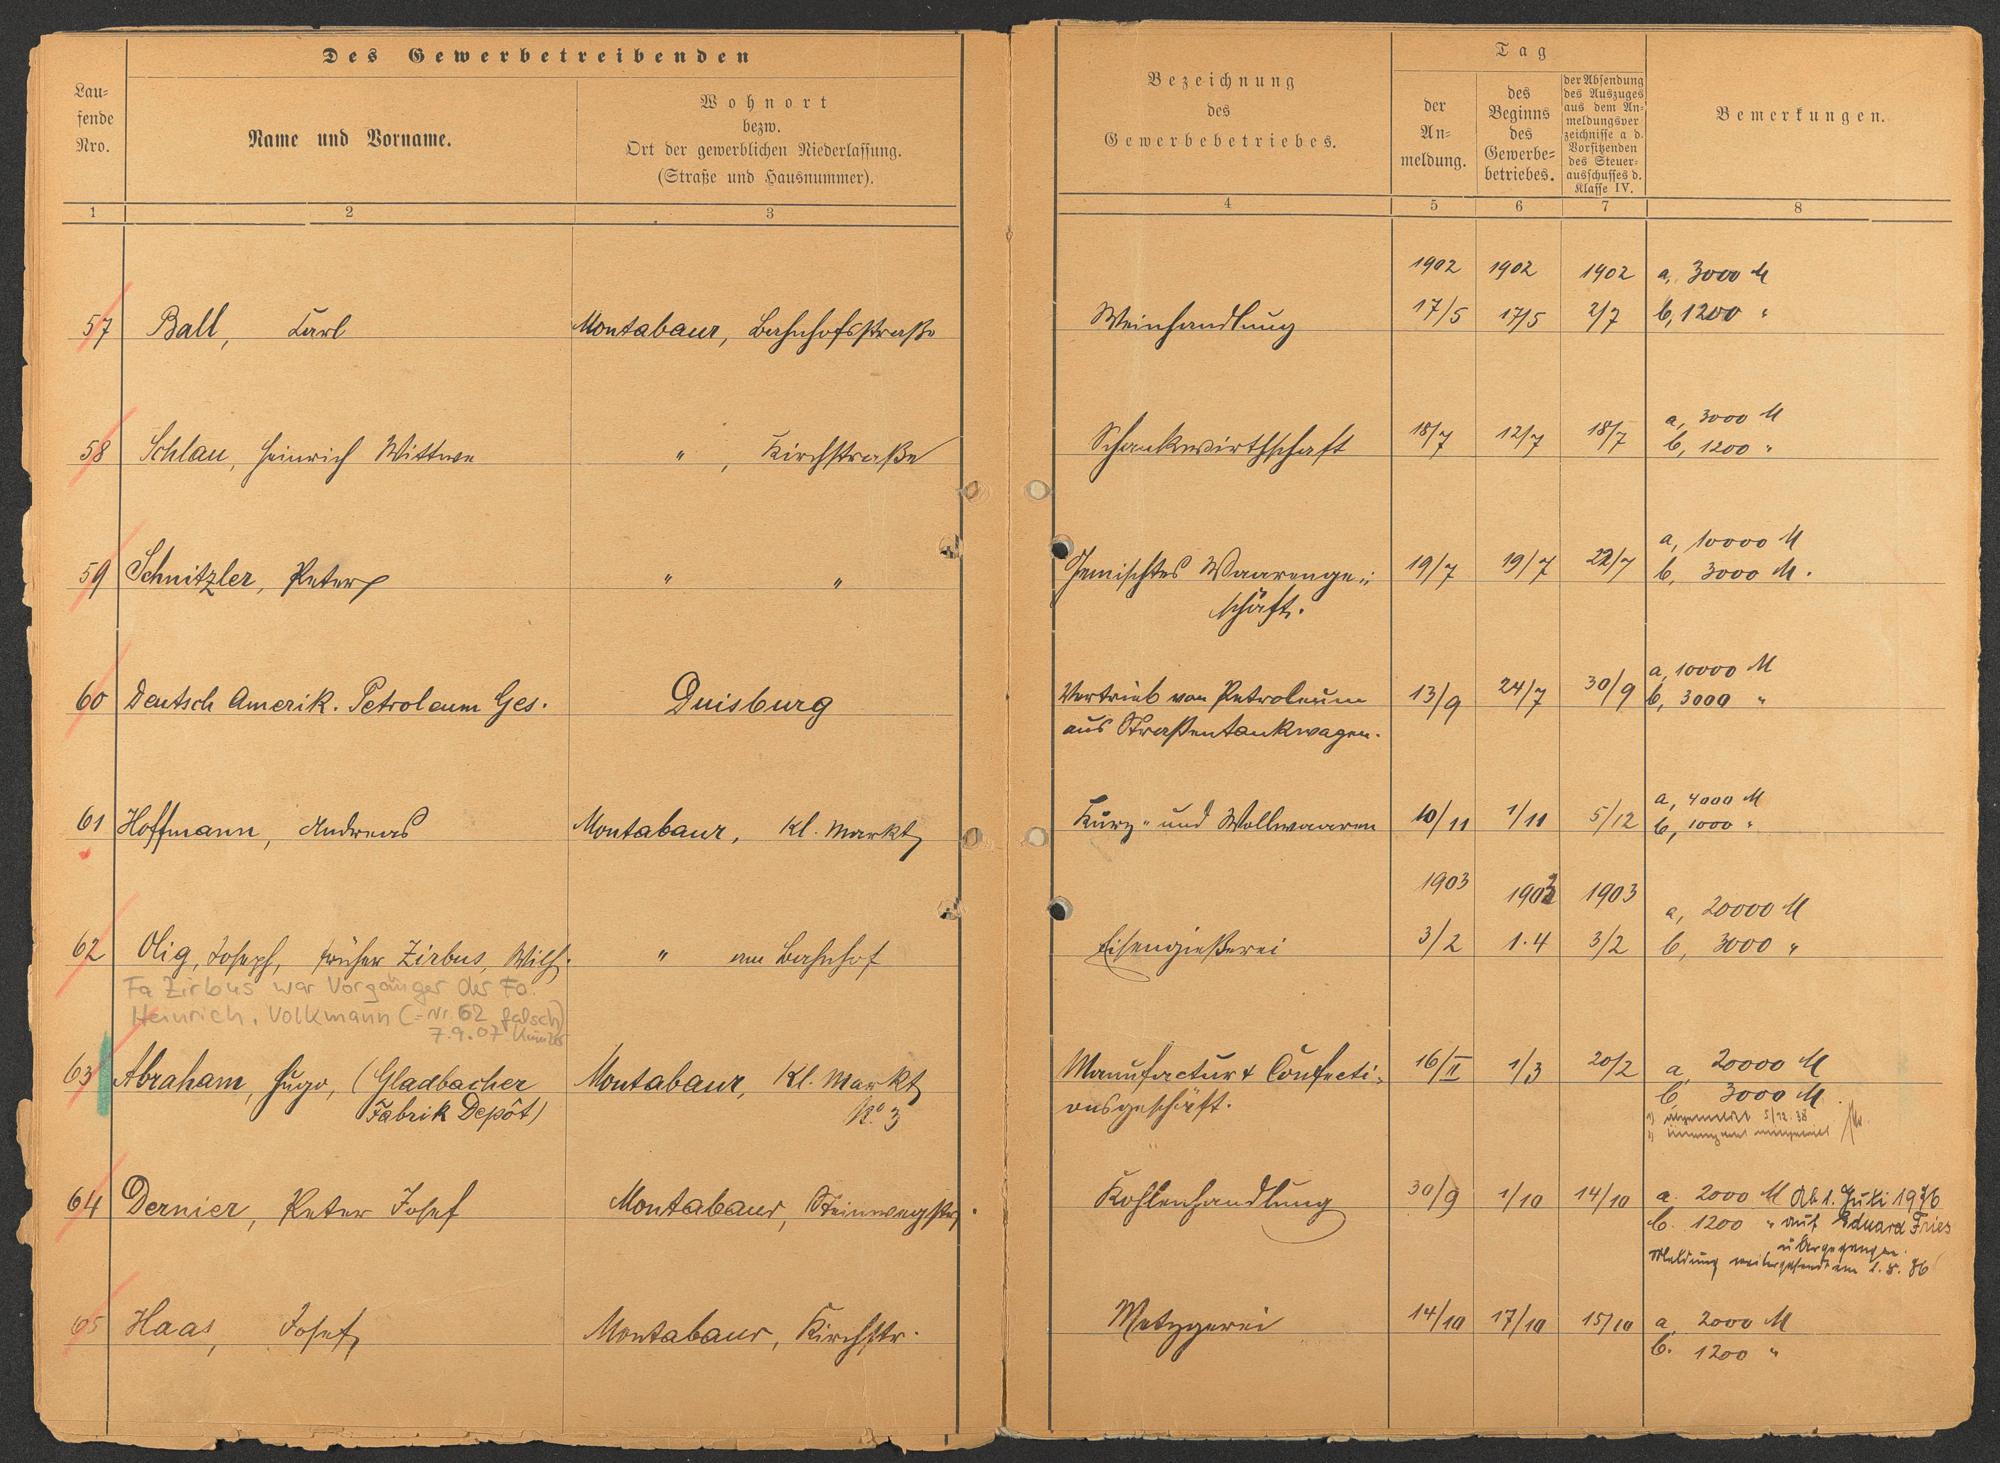 Des Gewerbetreibenden
Lau-
fende
Nro.
Name und Vorname.
Wohnort
bezw.
Ort der gewerblichen Niederlassung.
(Straße und Hausnummer).
Bezeichnung
des
Gewerbebetriebes.
Tag
der
An-
meldung.
des
Beginns
des
Gewerbe-
betriebes.
der Absendung
des Auszuges
aus dem An-
meldungsver
zeichnisse a d.
Vorsitzenden
des Steuer-
ausschusses d.
Klasse IV.
Bemerkungen.
1 2 3 4 5 6 7 8
1902 1902 1902 a, 3000 M
57 Ball, Carl Montabaur, Bahnhofsstraße Weinhandlung 17/5 17/5 2/7 b, 1200 "
a, 3000 M
58 Schlau, Heinrich Wittwe " , Kirchstraße Schankwirthschaft 18/7 12/7 18/7 b, 1200 "
a, 10000 M
59 Schnitzler, Peter " " Gemischtes Waarenge- 19/7 19/7 22/7 b, 3000 M.
schäft.
a, 10000 M
60 Deutsch Amerik. Petroleum Ges. Duisburg Vertrieb von Petroleum 13/9 24/7 30/9 b, 3000 "
aus Straßentankwagen.
a, 4000 M
61 Hoffmann, Andreas Montabaur, Kl. Markt Kurz- und Wollwaaren 10/11 1/11 5/12 b, 1000 "
1903 1903 1903 a, 20000 M
62 Olig, Joseph, früher Zirbus, Wilh. " am Bahnhof Eisengießerei 3/2 1.4 3/2 b, 3000 "
Fa Zirbus war Vorgänger der Fa.
Heinrich. Volkmann (-Nr. 62 falsch)
7.9.07
63 Abraham, Hugo, (Gladbacher Montabaur, Kl. Markt Manufactur & Confecti- 16/II 1/3 20/2 a 20000 M
Fabrik Depôt) No 3 onsgeschäft. b, 3000 M.
1) abgemeldet 5/12.38
2)
64 Dernier, Peter Josef Montabaur, Steinwegstr. Kohlenhandlung 30/9 1/10 14/10 a. 2000 M Ab 1. Juli 1936
b. 1200 " auf Eduard Fries
übergegangen.
Meldung weitergesandt am 1.8.36
65 Haas, Josef Montabaur, Kirchstr. Metzgerei 14/10 17/10 15/10 a 2000 M
b. 1200 "